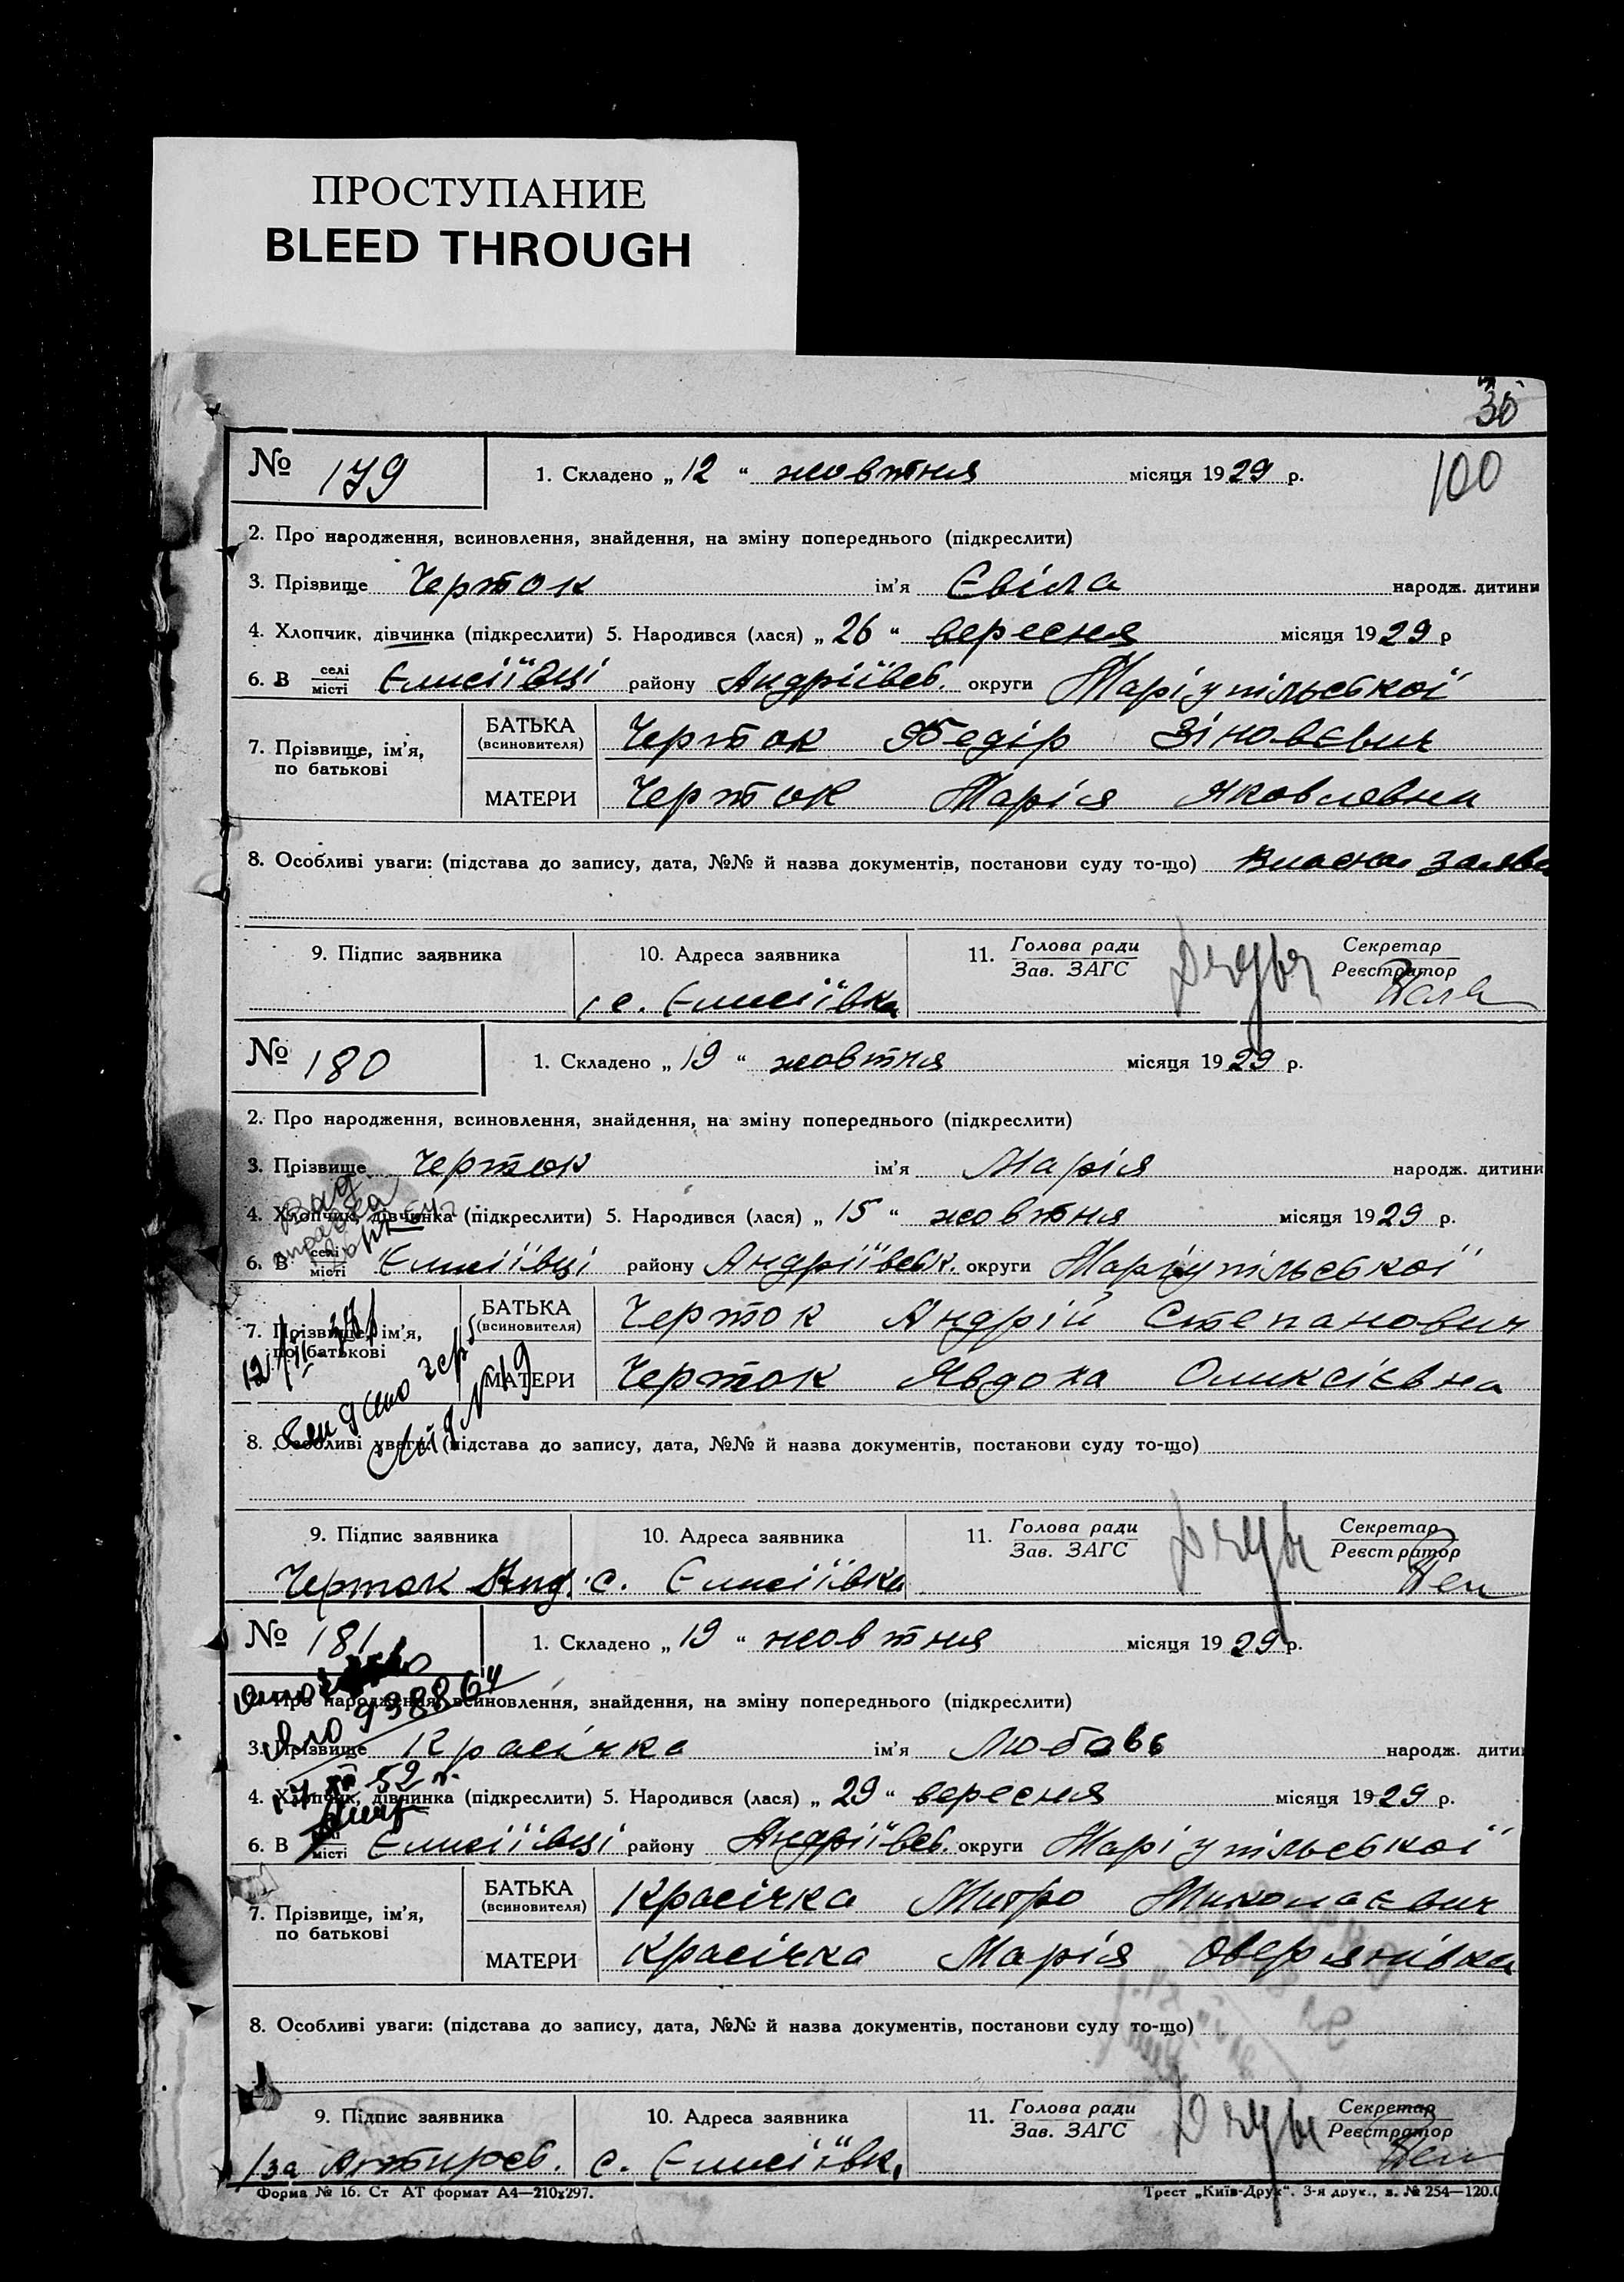 ПРОСТУПАНИЕ
BLEED THROUGH
30
100
№ 179 1. Складено „ 12 “ жовтня місяця 1929 р.
2. Про народження, всиновлення, знайдення, на зміну попереднього (підкреслити)
3. Прізвище Черток ім’я Євіла народж. дитини
4. Хлопчик, дівчинка (підкреслити) 5. Народився (лася) „ 26 “ вересня місяця 1929 р
6. В селі місті Єлисіївці району Андріївсб. округи Маріупільської
7. Прізвище, ім’я, по батькові БАТЬКА (всиновителя) Черток Федір Зіновєвич
МАТЕРИ Черток Марія Яковлевна
8. Особливі уваги: (підстава до запису, дата, №№ й назва документів, постанови суду то-що) Власна заява
9. Підпис заявника 10. Адреса заявника 11. Голова ради Зав. ЗАГС Секретар Реєстратор
с. Єлисіївка
№ 180 1. Складено „ 19 “ жовтня місяця 1929 р.
2. Про народження, всиновлення, знайдення, на зміну попереднього (підкреслити)
3. Прізвище Черток ім’я Марія народж. дитини
4. Хлопчик, дівчинка (підкреслити) 5. Народився (лася) „ 15 “ жовтня місяця 1929 р.
6. В селі місті Єлисіївці району Андріївськ. округи Маріупільської
7. Прізвище, ім’я, по батькові БАТЬКА (всиновителя) Черток Андрій Степанович
МАТЕРИ Черток Явдоха Оликсієвна
8. Особливі уваги: (підстава до запису, дата, №№ й назва документів, постанови суду то-що)
9. Підпис заявника 10. Адреса заявника 11. Голова ради Зав. ЗАГС Секретар Реєстратор
Черток Анд. с. Єлисіївка
№ 181 1. Складено „ 19 “ жовтня місяця 1929 р.
2. Про народження, всиновлення, знайдення, на зміну попереднього (підкреслити)
3. Прізвище Красічка ім’я Любовь народж. дити
4. Хлопчик, дівчинка (підкреслити) 5. Народився (лася) „ 29 “ вересня місяця 1929 р.
6. В селі місті Єлисіївці району Андріївсб. округи Маріупільської
7. Прізвище, ім’я, по батькові БАТЬКА (всиновителя) Красічка Митро Миколаєвич
МАТЕРИ Красічка Марія Оверянівна
8. Особливі уваги: (підстава до запису, дата, №№ й назва документів, постанови суду то-що)
9. Підпис заявника 10. Адреса заявника 11. Голова ради Зав. ЗАГС Секретар Реєстратор
с. Єлисіївк,
Форма № 16. Ст АТ формат А4—210х297. Трест „Київ-Друк“. 3-я друк., з. № 254—120.0